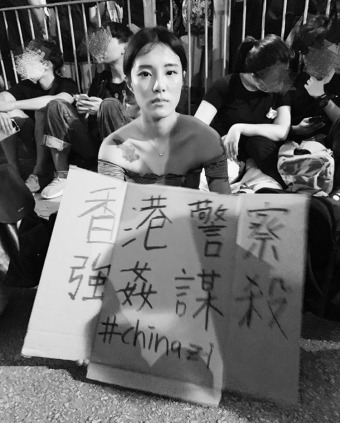 香港警察
強姦謀殺
#chinazi